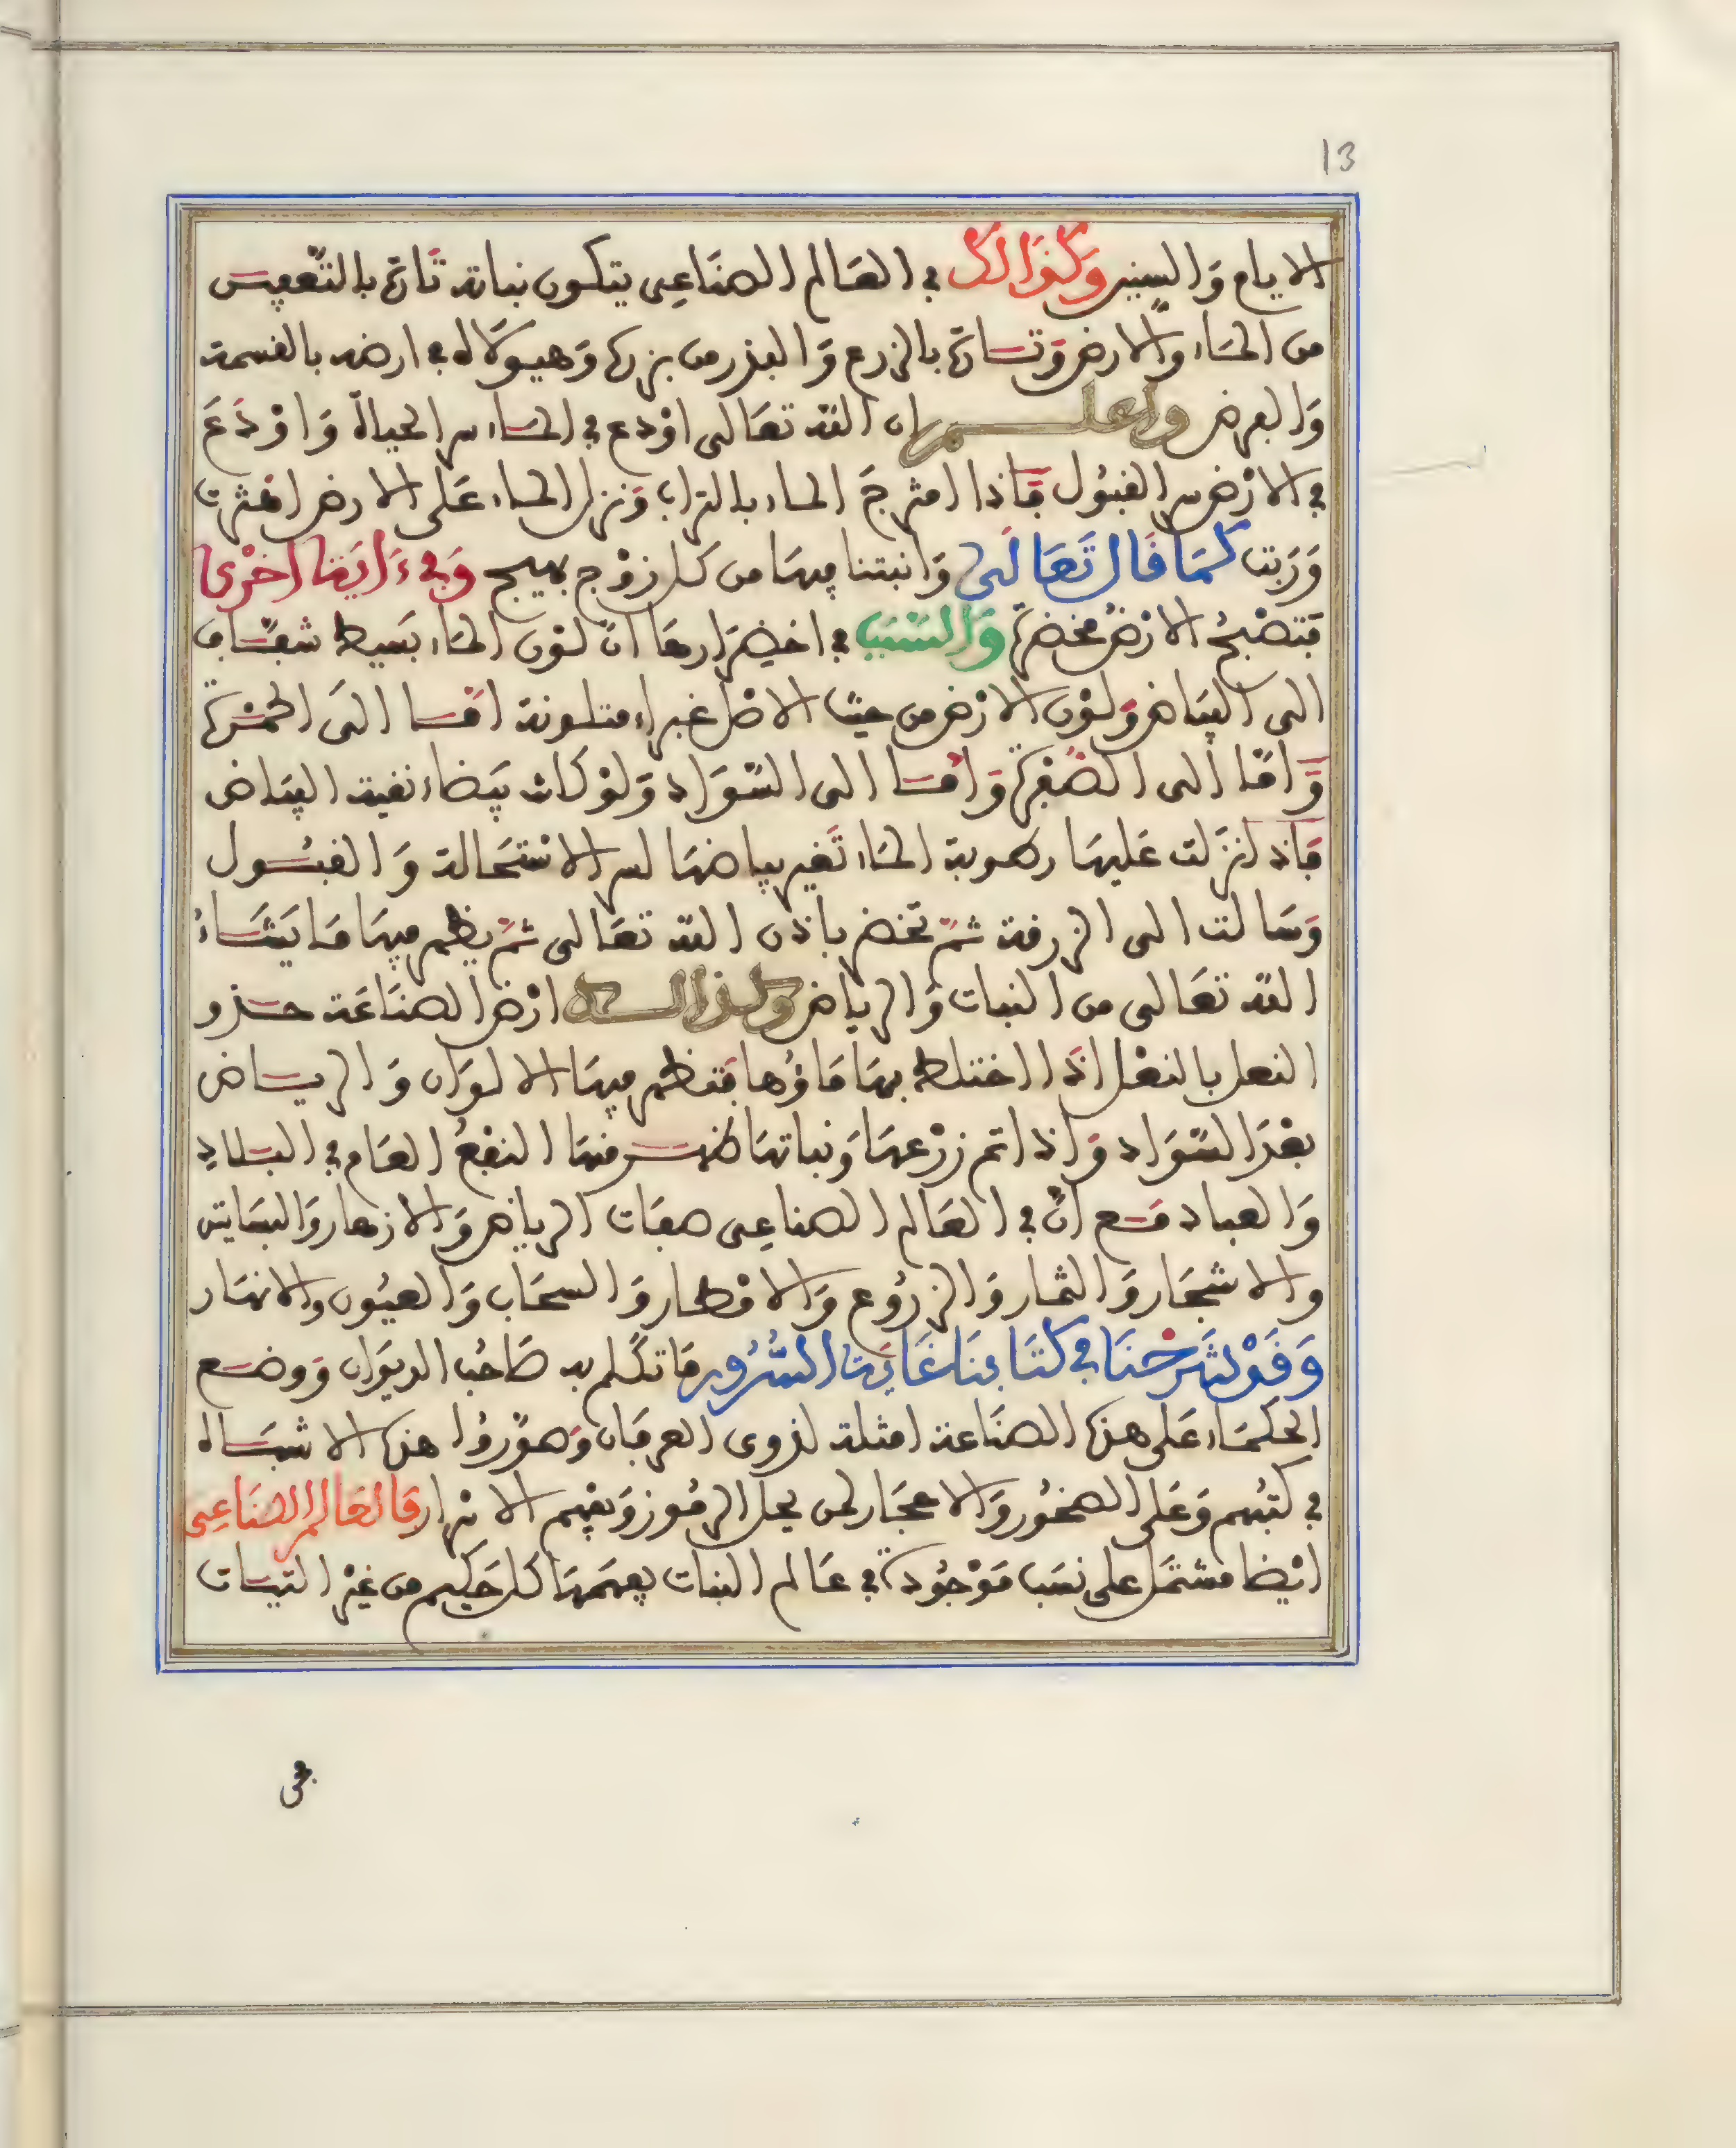 13
الايام وَالسنين وَكذَالك في العَالم الصنَاعِي يتكون نباته تَارة بالتّعفيس
من المَاء والارض وَتارة بالزرع وَالبذر من بزره وَهيولاه في ارضه بالقسمة
وَالعرض واعلم ان الله تعَالى اوْدع في المَاء سر الحياة وَاوْدَعَ
في الارْض سر القبُول فَاذا امتزجَ الماء بالتراب وَنزل الماء عَلى الارض اهتزت
وَرَبت كمَا قَال تَعَالَى وَانبتنا فيهَا من كل زوْج بهيج وَفي ءَايَة اخرْى
فتصْبحُ الارْضُ مخضرّة وَالسَبَب في اخضِرَارها انّ لوْن المَاء بَسيط شفّاف
الى البيَاض وَلوْن الارْض من حيث الاصْل غبراء متلونة امّا الىَ الحمْرة
وَامّا الى الصُفرة وَامّا الى السّوَاد وَلوْ كانت بيضاء نقية البيَاض
فَاذا نزَلت عَليهَا رطوبة المَاء تَغير بياضهَا لسر الاسْتحَالة وَالقبُول
وَمَالت الى الزرقة ثمّ تخضر باذن الله تعَالى ثمّ يظهر فيهَا مَا يَشَاءُ
الله تعَالى من النبات وَالرياض وكذالك ارْض الصنَاعَة حذو
النعل بالنعْل اذَا اختلط بهَا مَاؤها فتَظهر فيهَا الالوَان وَالرياض
بعْدَ السّوَاد وَاذا تم زرْعهَا وَنباتهَا ظهر منهَا النفعُ العَام في البلادِ
وَالعباد مَع انّ في العَالم الصناعِي صفات الرياض وَالازهار وَالبسَاتين
والاشجَار وَالثمار وَالزرُوع وَالامْطار وَالسحَاب وَالعيُون والانهَار
وَقَدْ شَرحْنَا في كتَابنَا غَايَة السُّرُور مَا تكلم به صَاحبُ الديوَان وَوضع
الحكمَاء عَلى هذه الصنَاعة امثلة لذوى العرفَان وَصوّرُوا هذه الاشبَاه
في كتبُهم وَعَلى الصخُور وَالاحجَار لمن يحل الرمُوز وَيفهم الاسْرار فَالعَالم الصنَاعِي
ايْضا مشتمَل على نسَب مَوْجُودَة في عَالم النبات يفهمهَا كل حَكيم من غيْر التباث